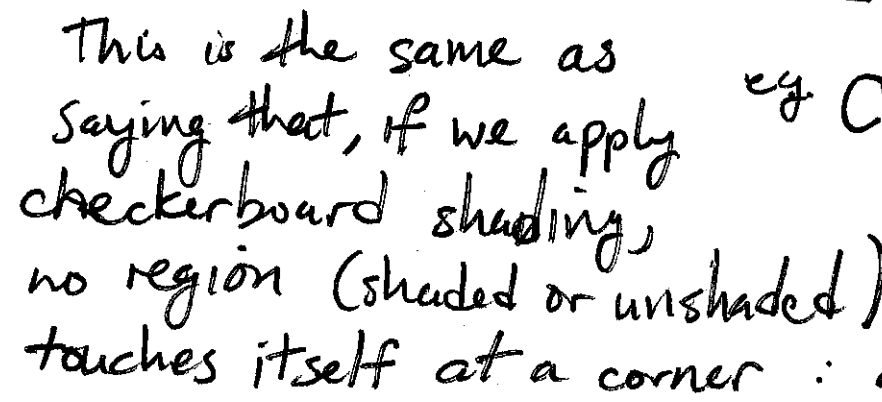 This is the same as
saying that, if we apply
eg. C
checkerboard shading,
no region (shaded or unshaded)
touches itself at a corner :